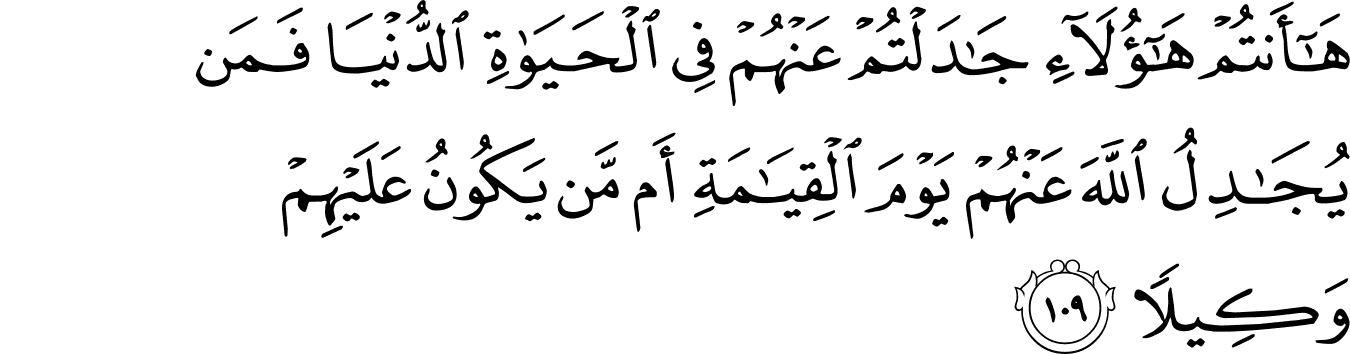 هَـٰٓأَنتُمْ هَـٰٓؤُلَآءِ جَـٰدَلْتُمْ عَنْهُمْ فِى ٱلْحَيَوٰةِ ٱلدُّنْيَا فَمَن
يُجَـٰدِلُ ٱللَّهَ عَنْهُمْ يَوْمَ ٱلْقِيَـٰمَةِ أَم مَّن يَكُونُ عَلَيْهِمْ
وَكِيلًا ١٠٩